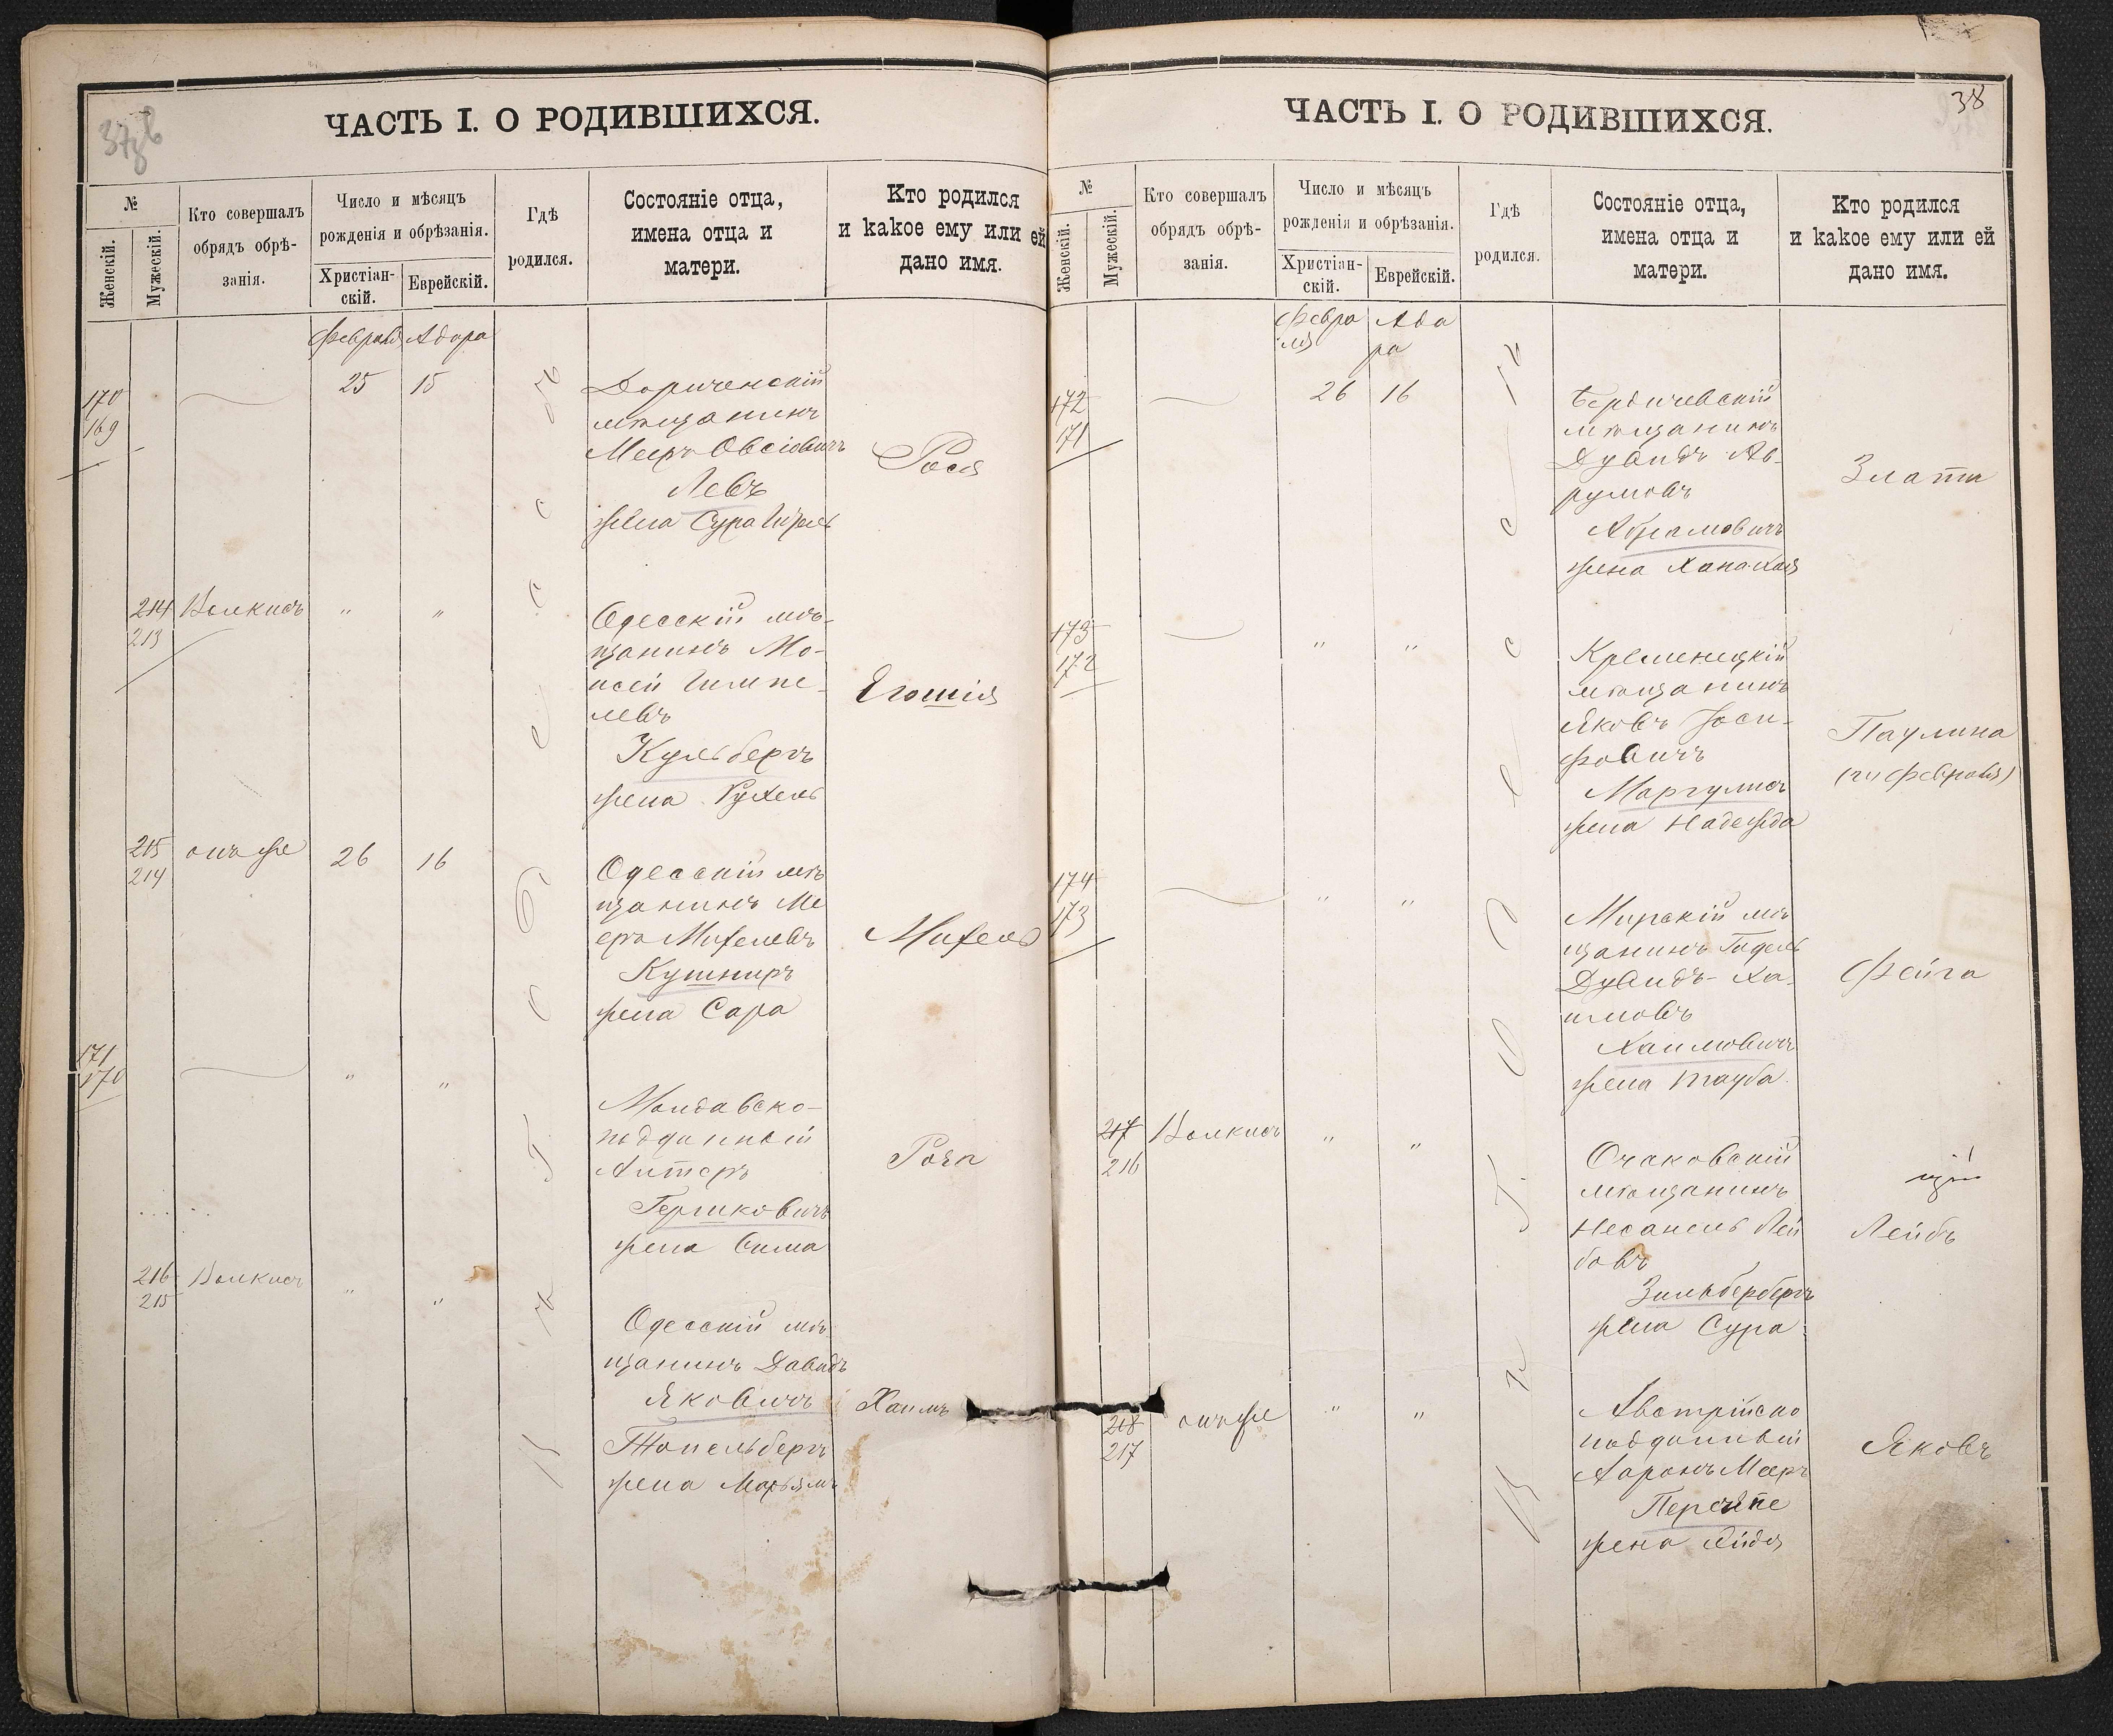 ЧАСТЬ I. О РОДИВШИХСЯ.
№
Женскій.
Мужескій.
Кто совершалъ
обрядъ обрѣ-
занія.
Число и мѣсяцъ
рожденія и обрѣзанія.
Христіан-
скій.
Еврейскій.
Гдѣ
родился.
Состояніе отца,
имена отца и
матери.
Кто родился
и какое ему или ей
дано имя.
Февраля Адара
170
169
25 15
мѣщанинъ
Мееръ Овсіовичъ
Левъ
жена Сура
Рося
214
213
Волкисъ
" "
Одесскій мѣ-
щанинъ Мо-
исей Гимпе-
левъ
Кульбергъ
жена Рухель
Егошія
215
214
онъ же
26 16
Одесскій мѣ
щанинъ Ме
еръ Михелевъ
Кушниръ
жена Сара
Михель
171
170
" "
Молдавско-
подданный
Антеръ
Гершковичъ
жена Сима
Роза
216
215
Волкисъ
" "
Одесскій мѣ
щанинъ Давидъ
Яковичъ
Топельбергъ
жена Марьямъ
Хаимъ
ЧАСТЬ I. О РОДИВШИХСЯ.
38
№
Женскій.
Мужескій.
Кто совершалъ
обрядъ обрѣ-
занія.
Число и мѣсяцъ
рожденія и обрѣзанія.
Христіан-
скій.
Еврейскій.
Гдѣ
родился.
Состояніе отца,
имена отца и
матери.
Кто родился
и какое ему или ей
дано имя.
Февра Ада
ля ра
172
171
26 16
Бердичевскій
мѣщанинъ
Дувидъ Ав-
румовъ
Абрамовичъ
жена Хана Хая
Злата
173
172
" "
Кременецкій
мѣщанинъ
Яковъ Іоси-
фовичъ
Маргулисъ
жена Надежда
Паулина
174
173
" "
Мирскій мѣ
щанинъ Гадель
Дувидъ-Ха-
имовъ
Хаимовичъ
жена Тауба
Фейга
217
216
Волкисъ
" "
Очаковскій
мѣщанинъ
Несанель Лей
бовъ
Зильбербергъ
жена Сура
Лейбъ
218
217
онъ же
" "
Австрійско
подданный
Аронъ Мееръ
жена Эйдя
Яковъ